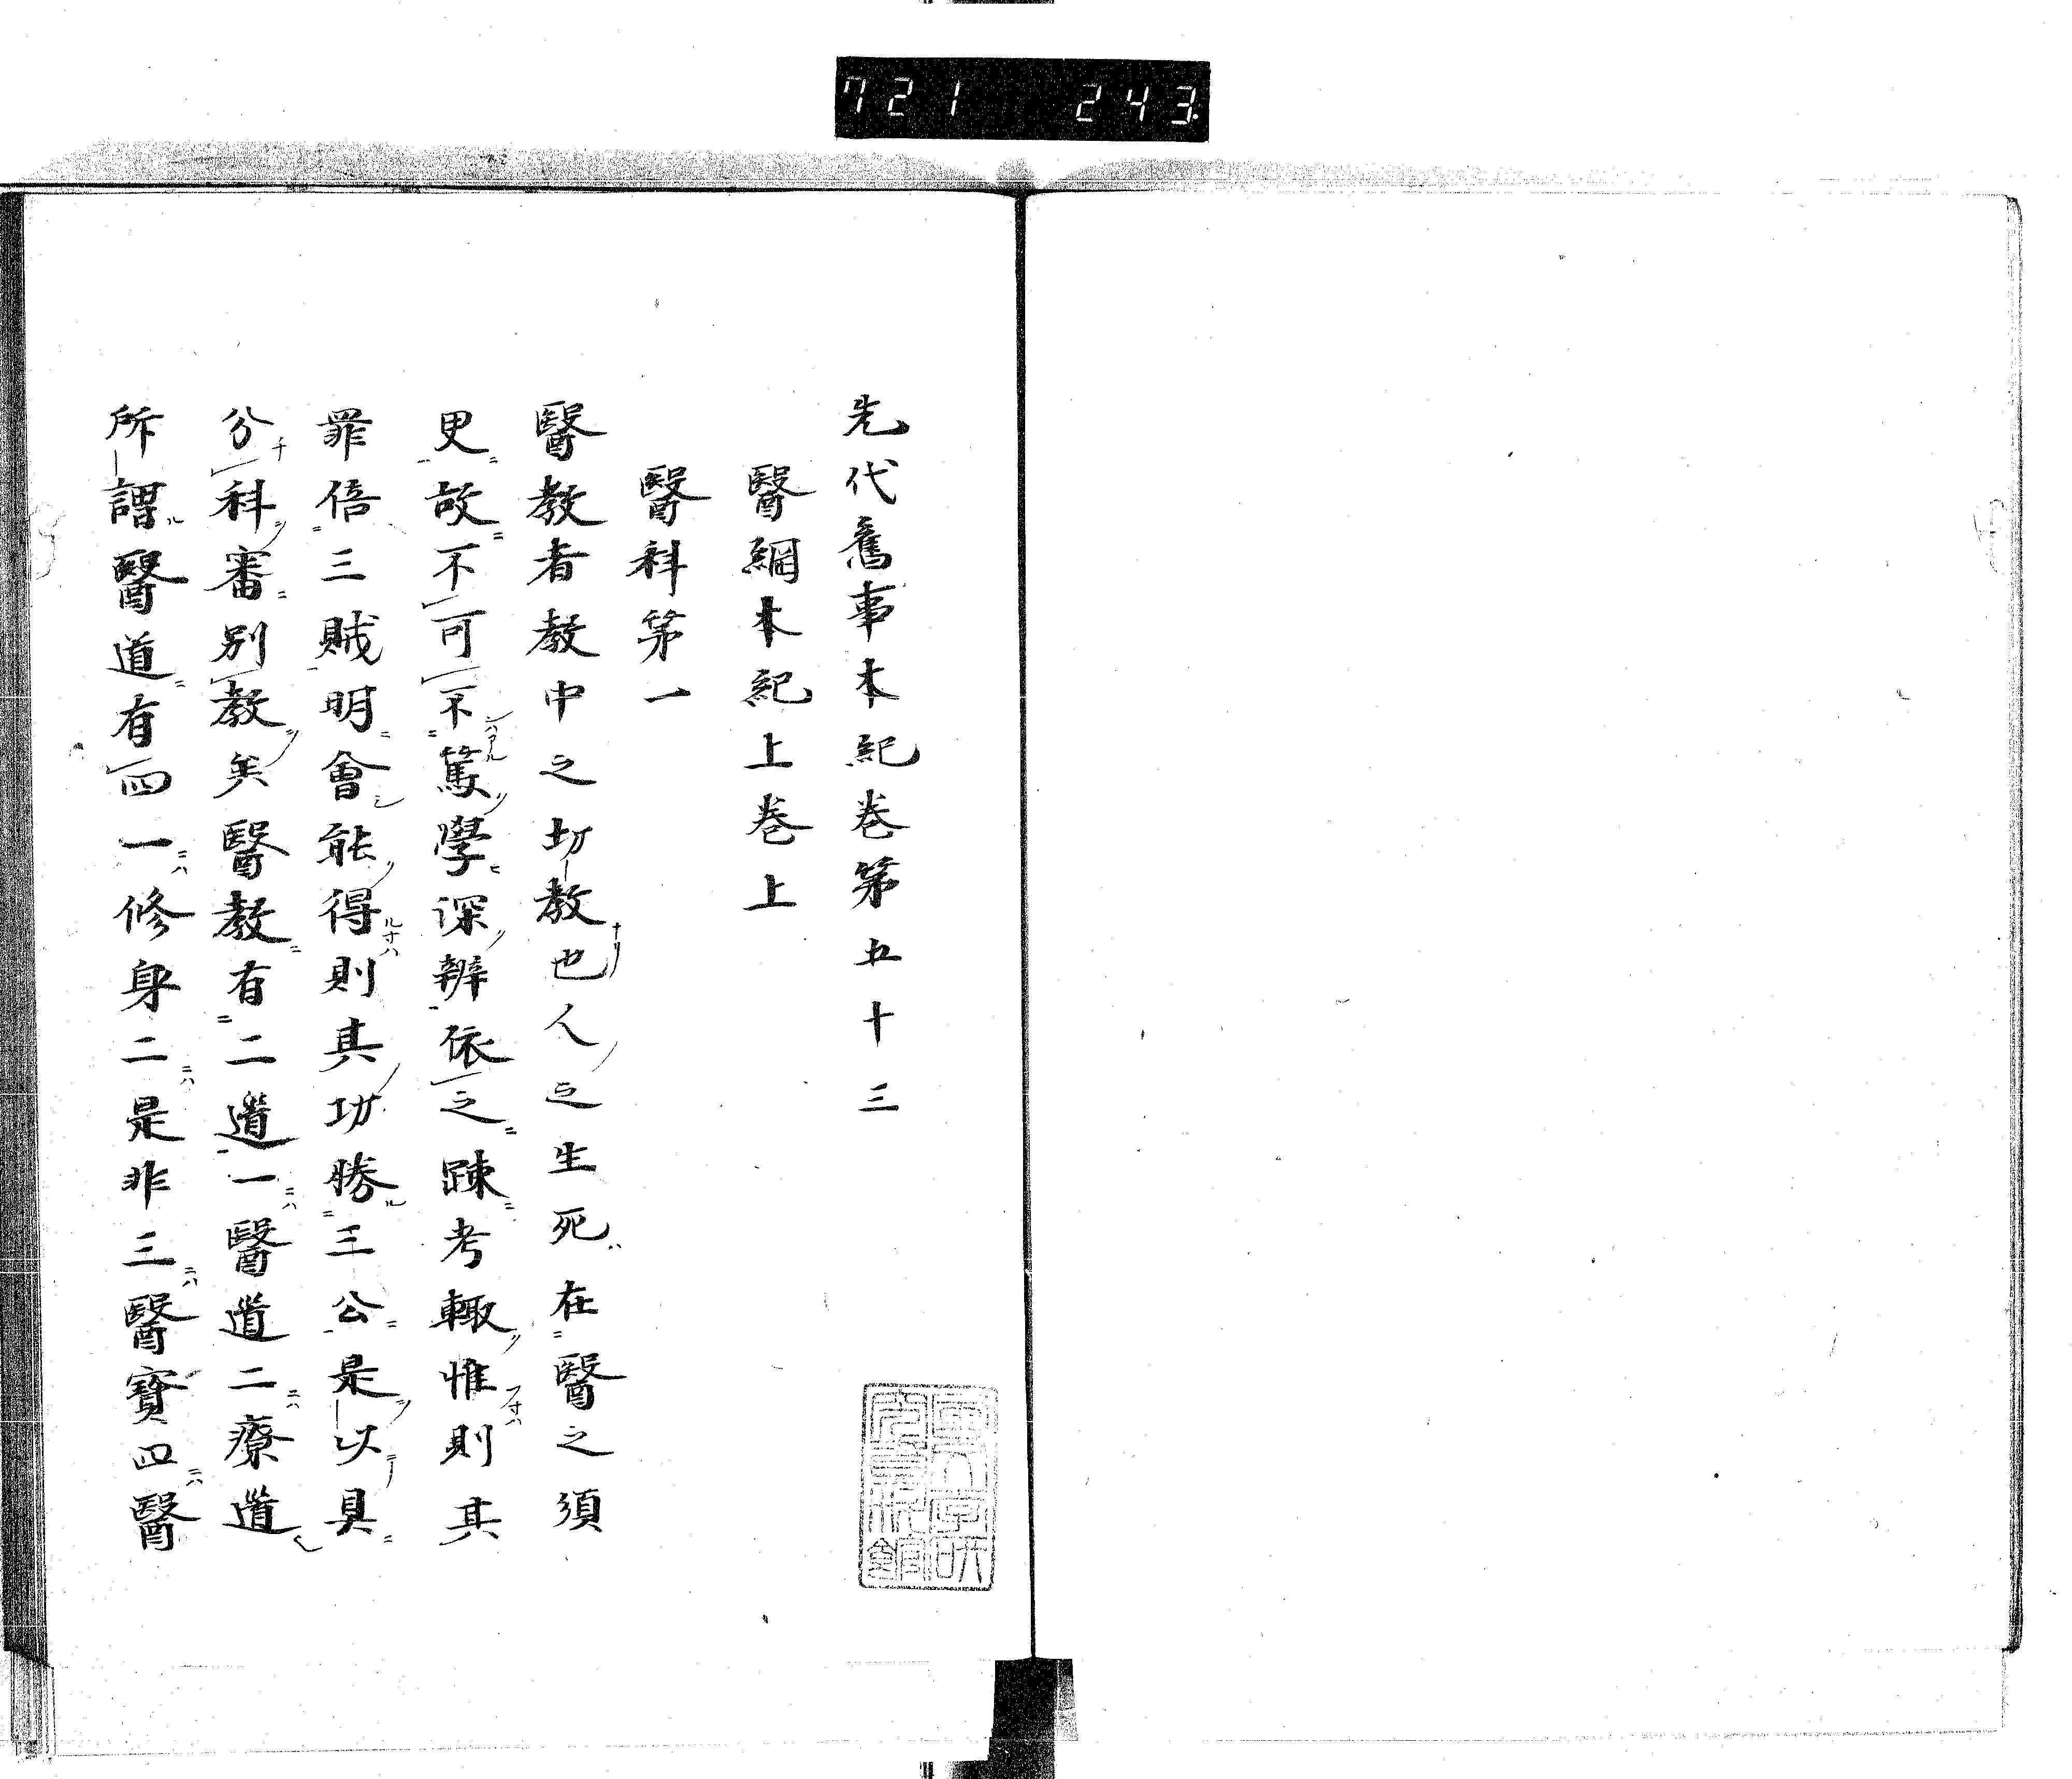 721 243
先代舊事本紀巻第五十三
醫綱本紀上巻上
醫科第一
醫教者教中之切教也人之生死在醫之須
更故不可不篤學深辨依之踈考輙惟則其
罪倍三賊明會能得則其功勝三公是以具
分科審別教矣醫教有二道一醫道二療道
所謂醫道有四一修身二是非三醫寶四醫